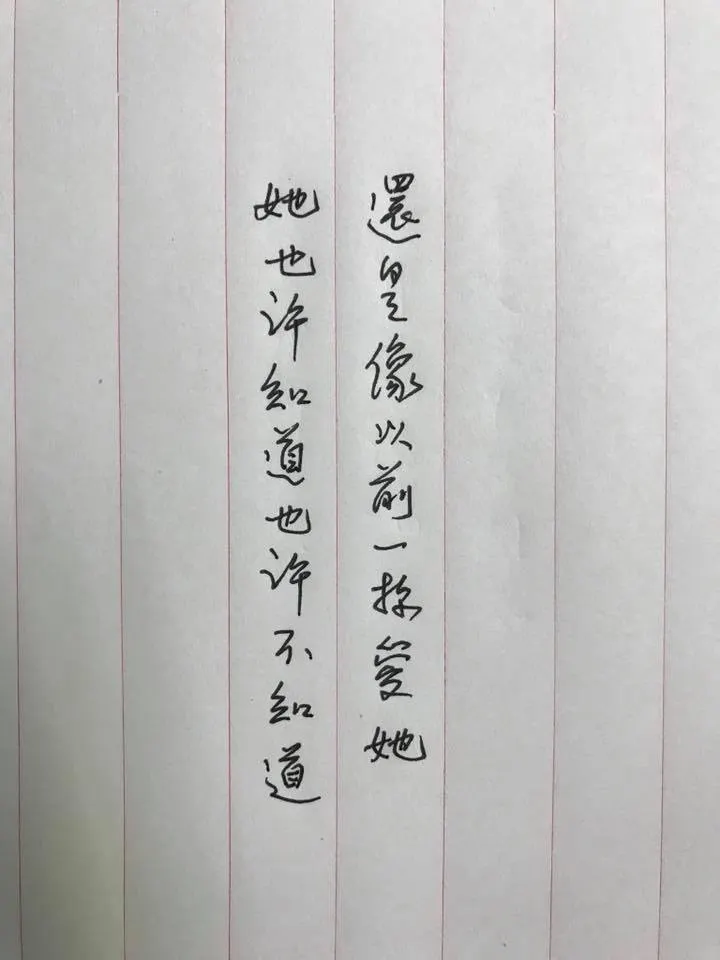 還是像以前一樣愛她
她也许知道也许不知道